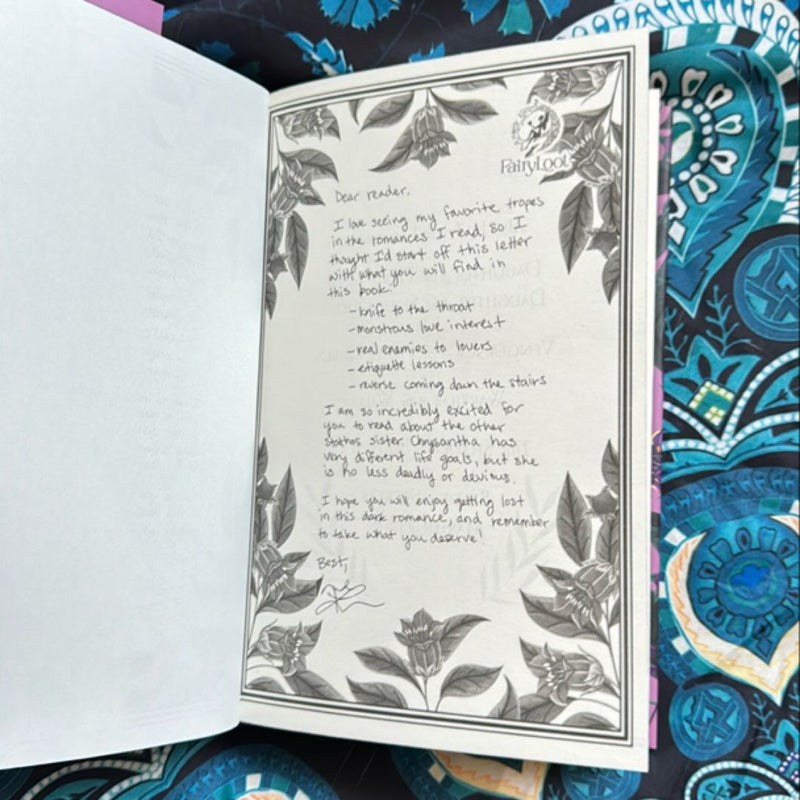 FairyLoot
Dear reader,
I love seeing my favorite tropes
in the romances I read, so I
thought I'd start off this letter
with what you will find in
this book:
- knife to the throat
- monstrous love interest
- real enemies to lovers
- etiquette lessons
- reverse coming down the stairs
I am so incredibly excited for
you to read about the other
Stathos sister. Chrysantha has
very different life goals, but she
is no less deadly or devious.
I hope you will enjoy getting lost
in this dark romance, and remember
to take what you deserve!
Best,